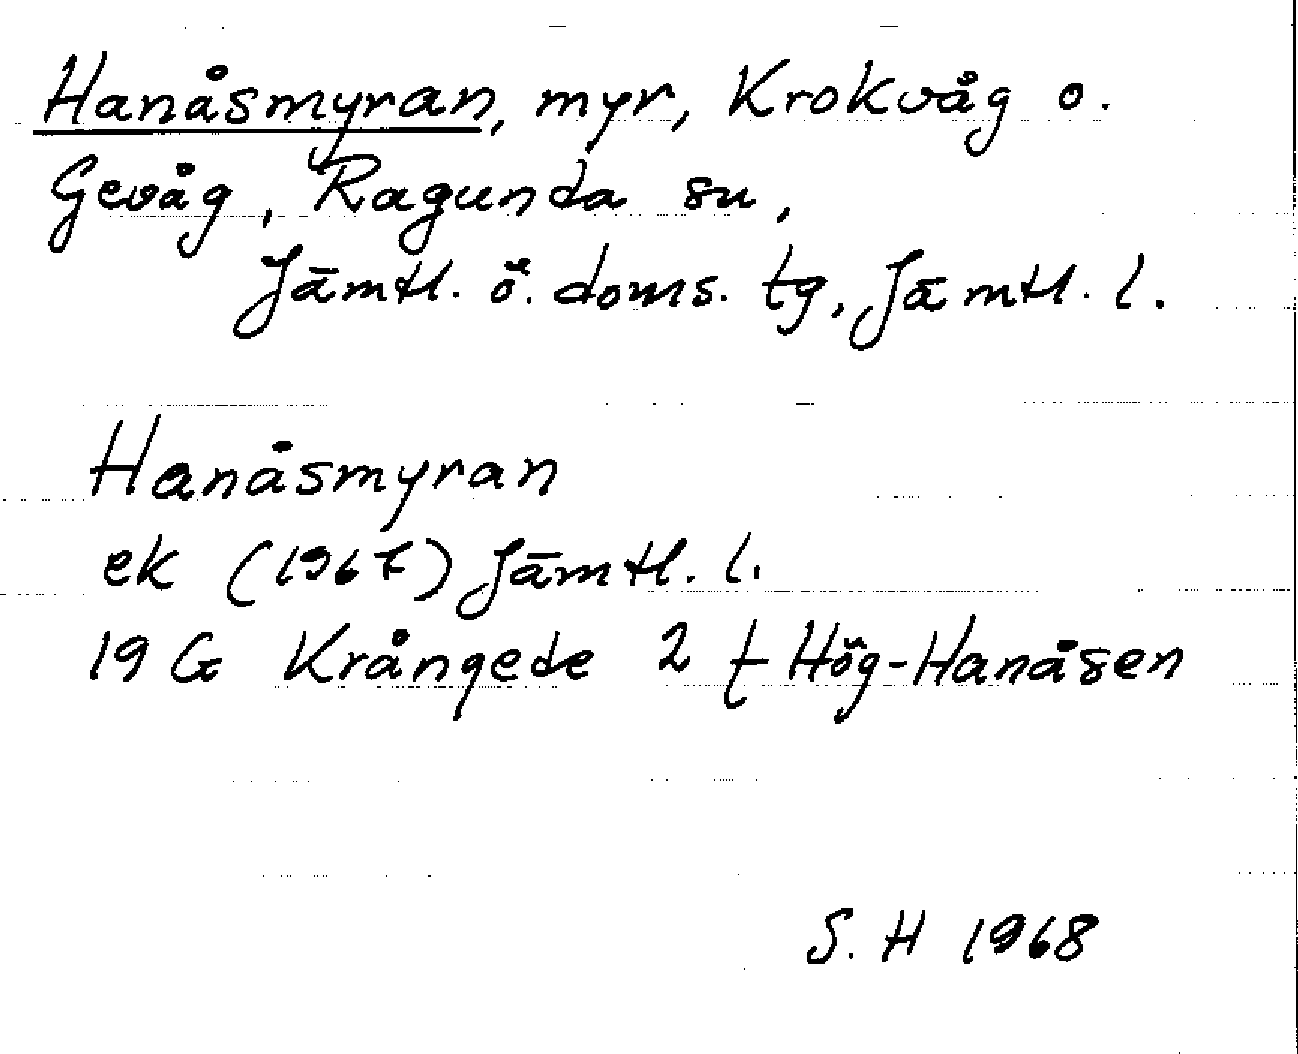 Hanåsmyran, myr, Krokvåg o.
Gevåg, Ragunda sn,
Jämtl. ö. doms. tg, Jämtl. l.
Hanåsmyran
ek (1967) Jämtl. l.
19 G Krångede 2 f Hög-Hanåsen
S. H 1968